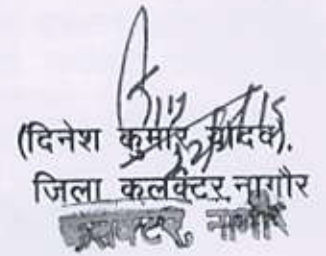 (दिनेश कुमार यादव).
जिला कलक्टर, नागौर
कलक्टर, नागौर